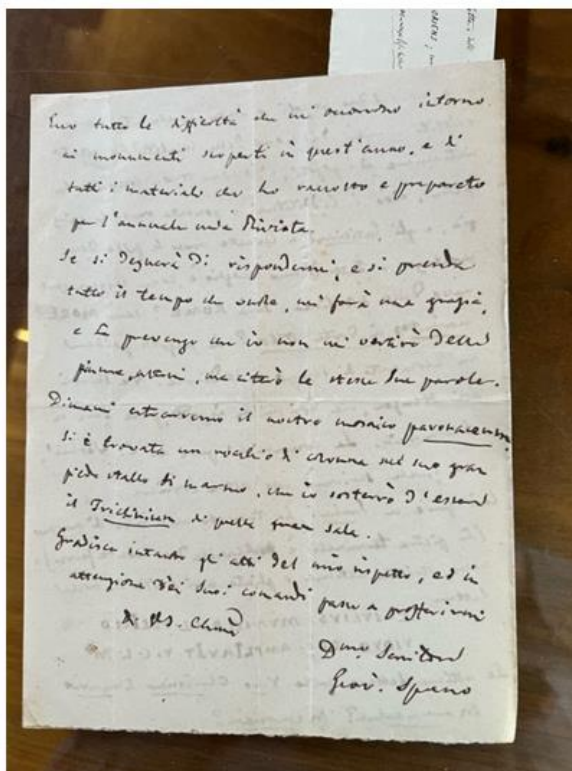 Ecco tutte le difficoltà che mi occorrono intorno
ai monumenti scoperti in quest'anno, e di
tutti i materiali che ho raccolto e preparato
per l'annuale mia Rivista.
Se si degnerà di rispondermi, e si prenda
tutto il tempo che vuole, mi farà una grazia,
e La prevengo che io non mi vestirò delle
penne, ma citerò le stesse Sue parole.
Dimani estrarremo il nostro mosaico
si è trovata un rocchio di colonna nel suo gran
piede stallo di marmo, che io sosterrò d'essere
il Triclinium di quella gran sala.
Gradisca intanto gli atti del mio rispetto, ed in
attenzione dei Suoi comandi passo a profferirmi
di VS.
Dmo. Servitore
Giov. Spano